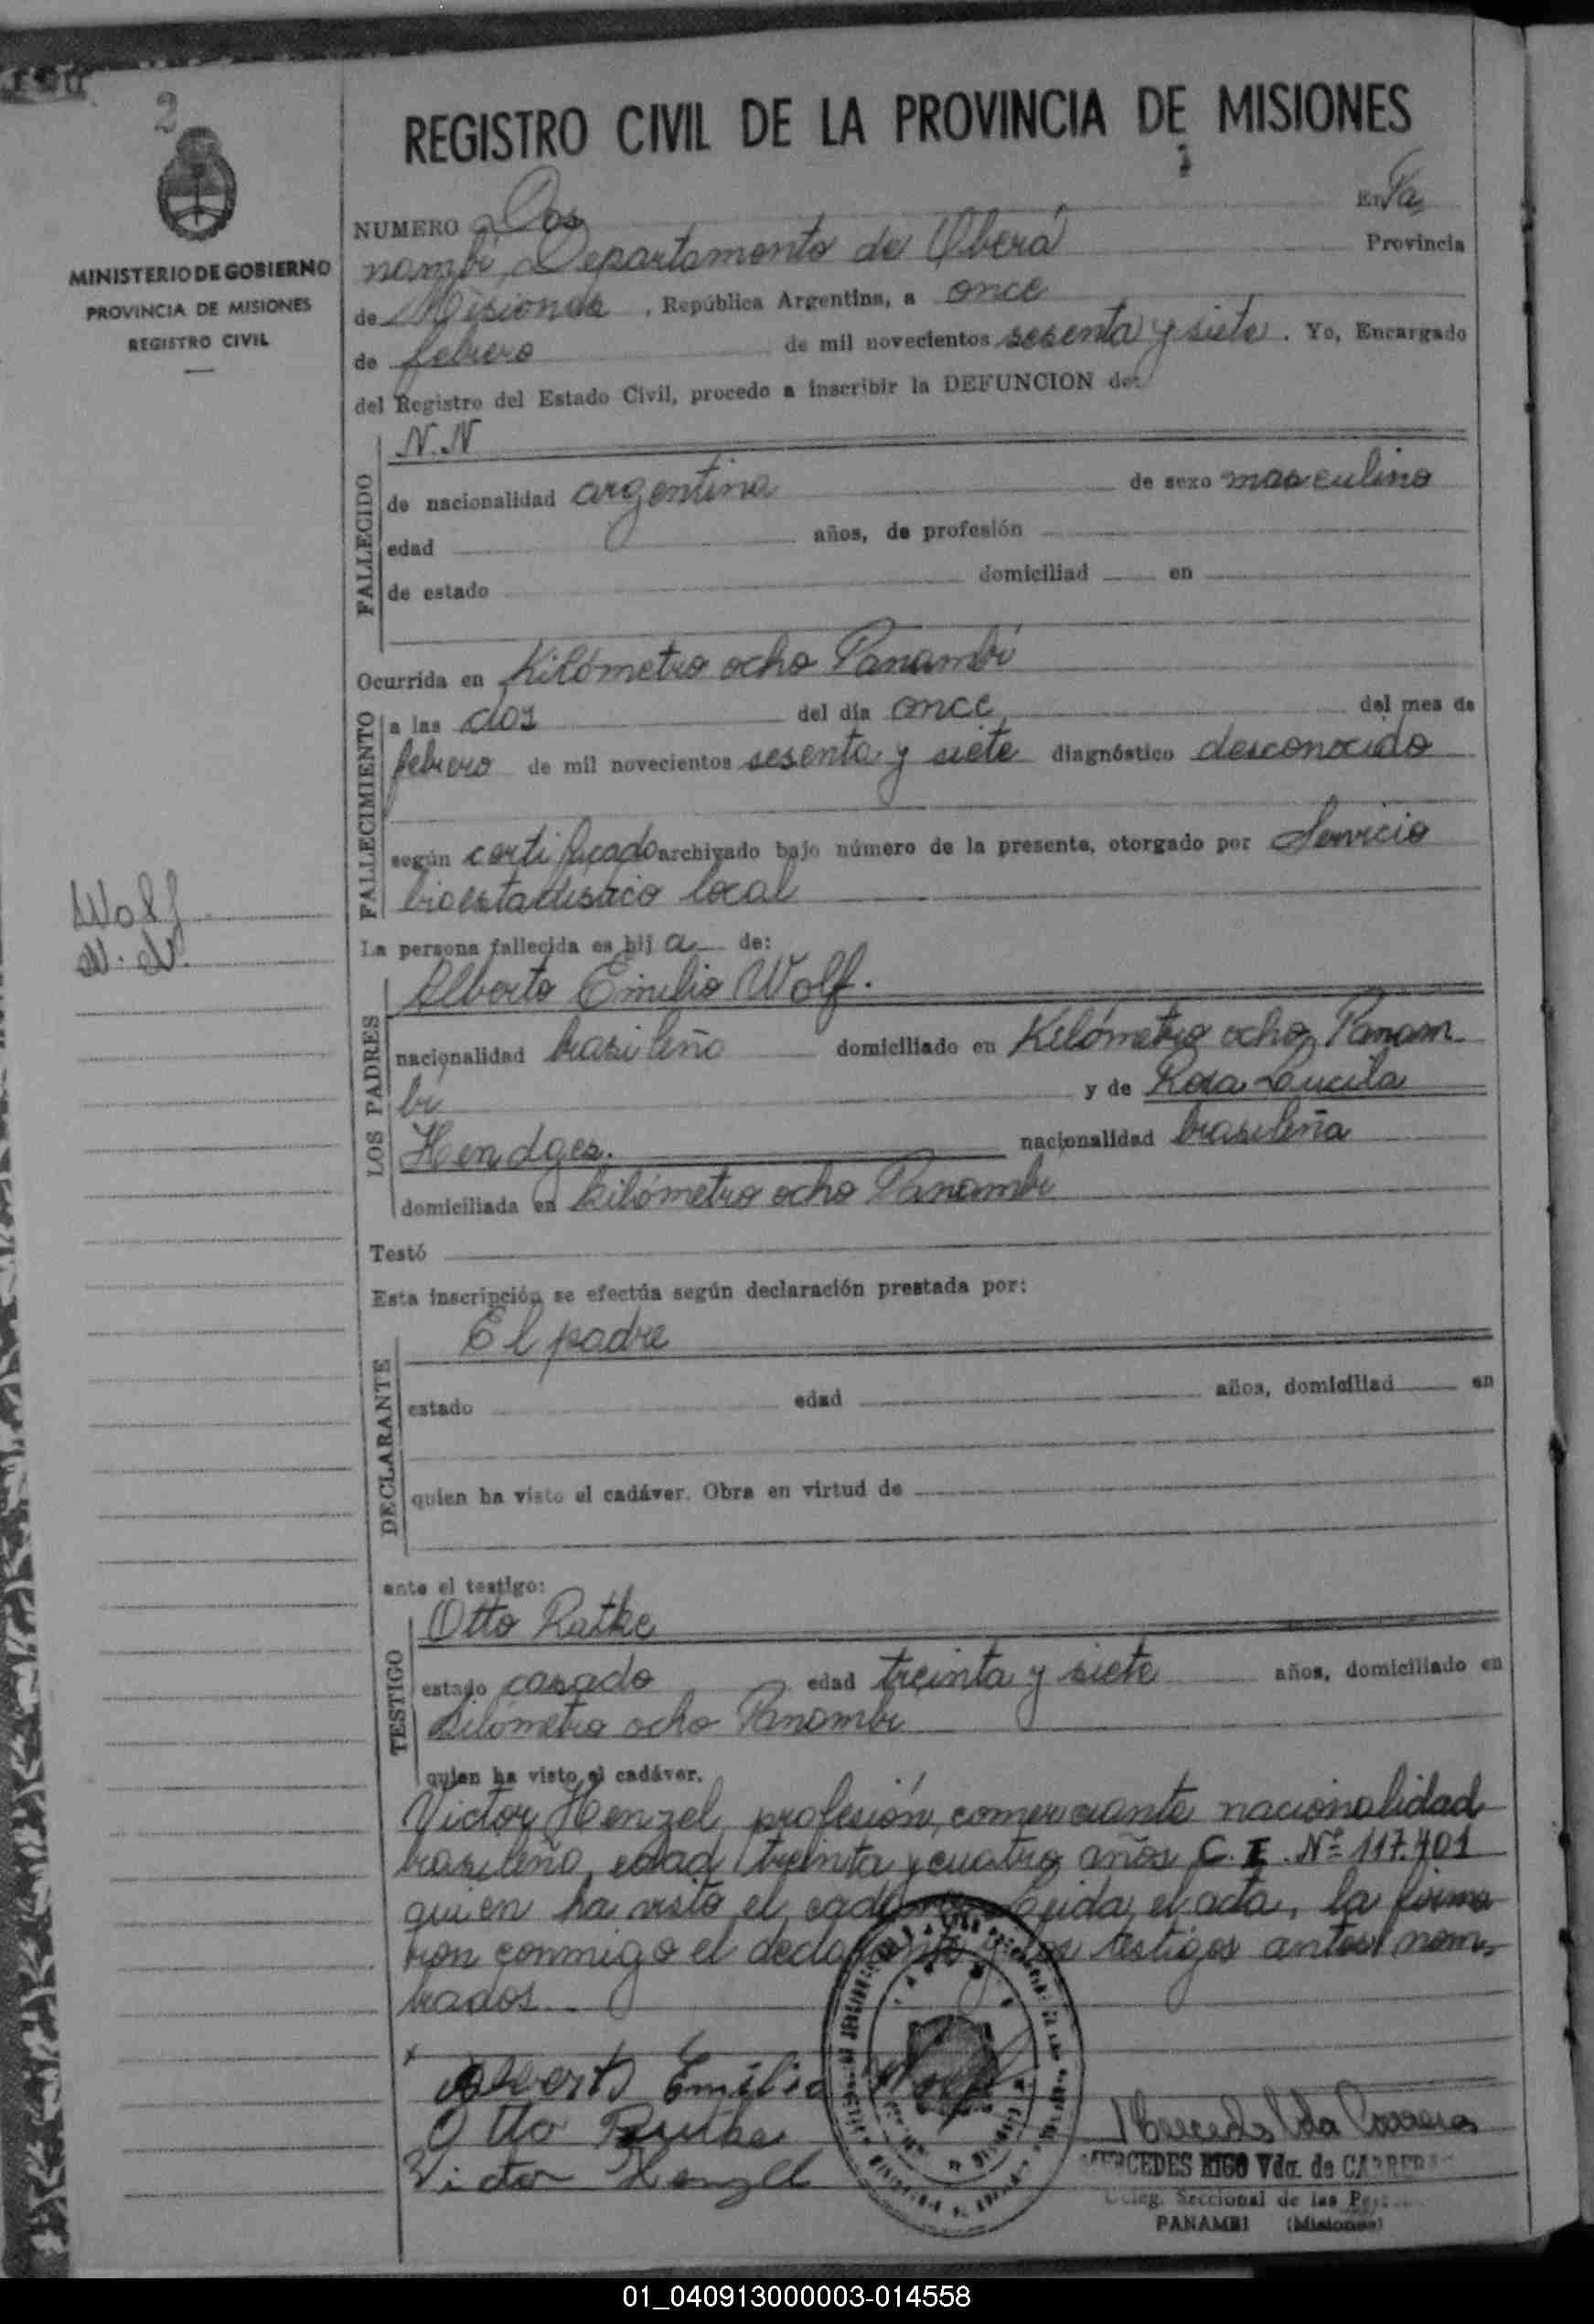 2
MINISTERIO DE GOBIERNO
PROVINCIA DE MISIONES
REGISTRO CIVIL
Wolf
N. N.
REGISTRO CIVIL DE LA PROVINCIA DE MISIONES
NUMERO Dos En Pa
nambí, Departamento de Oberá Provincia
de Misiones, República Argentina, a once
de febrero de mil novecientos sesenta y siete. Yo, Encargado
del Registro del Estado Civil, procedo a inscribir la DEFUNCION de:
FALLECIDO
N.N
de nacionalidad argentina de sexo masculino
edad años, de profesión
de estado domiciliad en
Ocurrida en Kilómetro ocho Panambí
FALLECIMIENTO
a las dos del día once del mes de
febrero de mil novecientos sesenta y siete diagnóstico desconocido
según certificado archivado bajo número de la presente, otorgado por Servicio
bioestadístico local
La persona fallecida es hij a de:
LOS PADRES
Alberto Emilio Wolf.
nacionalidad brasileño domiciliado en Kilómetro ocho, Panam
bí y de Rosa Laucila
Hendges. nacionalidad brasileña
domiciliada en kilómetro ocho Panambi
Testó
Esta inscripción se efectúa según declaración prestada por:
DECLARANTE
El padre
estado edad años, domiciliad en
quien ha visto el cadáver. Obra en virtud de
ante el testigo:
TESTIGO
Otto Ratke
estado casado edad treinta y siete años, domiciliado en
kilómetro ocho Panambi
quien ha visto el cadáver.
Victor Henzel, profesión, comerciante nacionalidad
brasileño, edad, treinta y cuatro años C.I. Nº 117.401
quien ha visto el cadáver. Leida el acta, la firma
ron conmigo el declarante y los testigos antes nom,
brados.
Alberto Emilio Wolf
Otto Ratke
Victor Henzel
Mercedes Vda Carrera
MERCEDES RIGO Vda. de CARRERA
Deleg. Seccional de las Per
PANAMBI (Misiones)
01_040913000003-014558